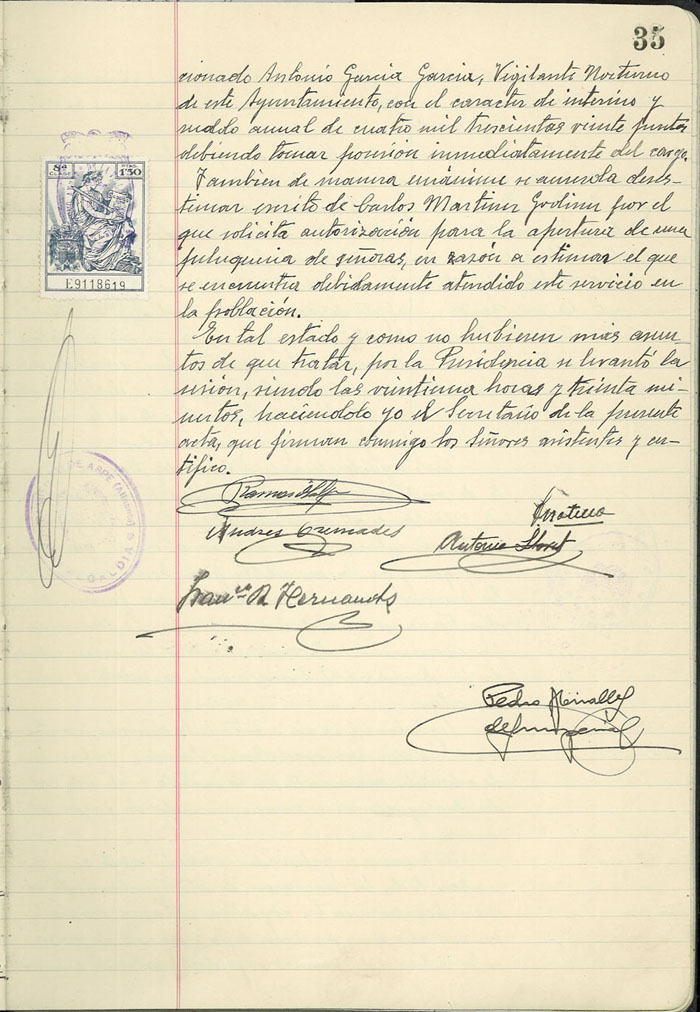 35
cionado Antonio Garcia Garcia, Vigilante Nocturno
de este Ayuntamiento, con el caracter de interino y
sueldo anual de cuatro mil trescientas veinte
debiendo tomar posesión inmediatamente del cargo.
Tambien de manera unánime se acuerda deses-
timar escrito de Carlos Martinez por el
que solicita autorización para la apertura de una
peluqueria de señoras, en razón a estimar el que
se encuentra debidamente atendido este servicio en
la población.
En tal estado y como no hubieren más asun-
tos de que tratar, por la Presidencia se levantó la
sesión, siendo las veintiuna horas y treinta mi-
nutos, haciéndolo yo el Secretario de la presente
acta, que firman conmigo los Señores asistentes y cer-
tifico.
8ª
1'50
E9118619
DE ASPE (Alicante)
ALCALDIA
Andres Cremades
Antonio Lloret
Franco. A. Hernandez
Pedro